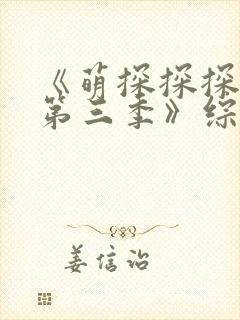 《萌探探探
第三季》综
姜信治